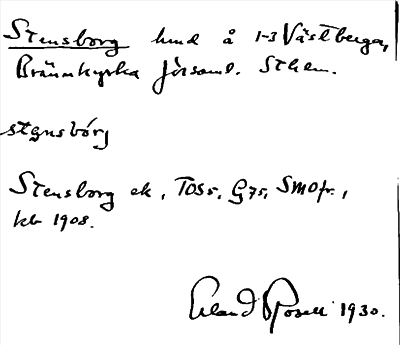 Stensborg hmd å 1-3 Västberga,
Brännkyrka församl. Sthlm.
stęnsbórj
Stensborg ek, T055, G75, SMOfr.,
kb 1908.
Erland Rosell 1930.